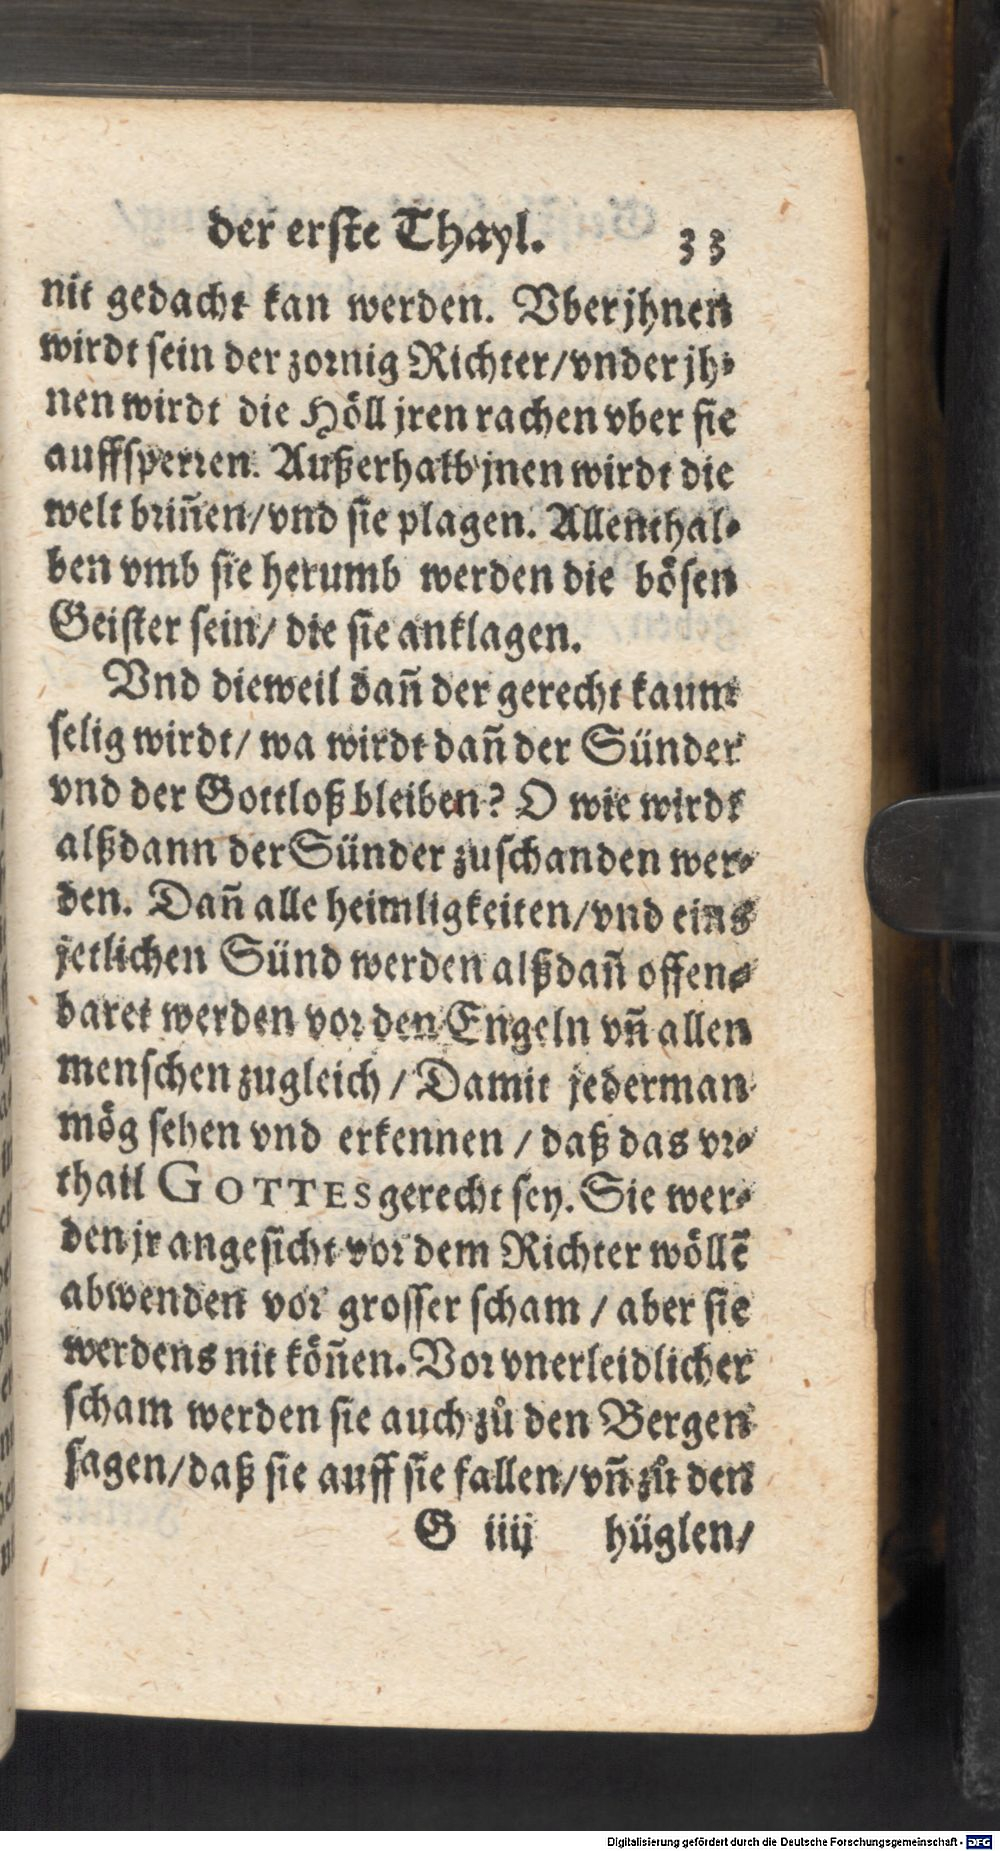 der erste Thayl. 33
nit gedacht kan werden. Vber jhnen
wirdt sein der zornig Richter/vnder jh⸗
nen wirdt die Höll jren rachen vber sie
auffsperren. Außerhalb jnen wirdt die
welt briñen/vnd sie plagen. Allenthal⸗
ben vmb sie herumb werden die bösen
Geister sein/ die sie anklagen.
Vnd dieweil dañ der gerecht kaum
selig wirdt/ wa wirdt dañ der Sünder
vnd der Gottloß bleiben? O wie wirdt
alßdann der Sünder zuschanden wer⸗
den. Dañ alle heimligkeiten/vnd eins
jetlichen Sünd werden alßdañ offen⸗
baret werden vor den Engeln vñ allen
menschen zugleich / Damit jederman
mög sehen vnd erkennen / daß das vr⸗
thail GOTTES gerecht sey. Sie wer⸗
den jr angesicht vor dem Richter wöllē
abwenden vor grosser scham / aber sie
werdens nit köñen. Vor vnerleidlicher
scham werden sie auch zů den Bergen
sagen/daß sie auff sie fallen/vñ zů den
G iiij hüglen/
Digitalisierung gefördert durch die Deutsche Forschungsgemeinschaft - DFG